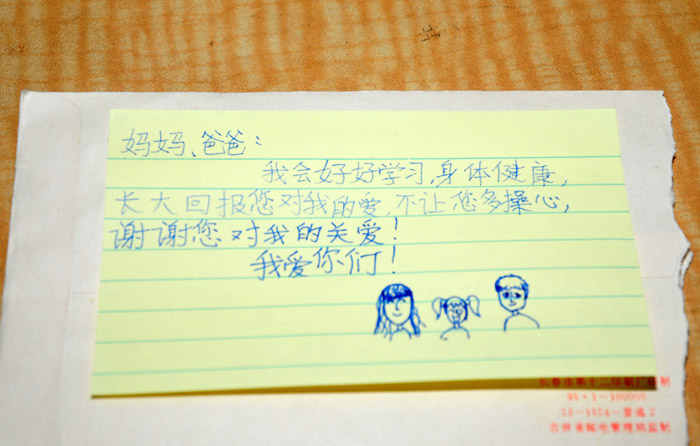 妈妈、爸爸：
我会好好学习,身体健康,
长大回报您对我的爱,不让您多操心,
谢谢您对我的关爱!
我爱你们!
长春市第十二印刷厂印制
95·1-100000
13-1154-普通2
吉林省邮电管理局监制